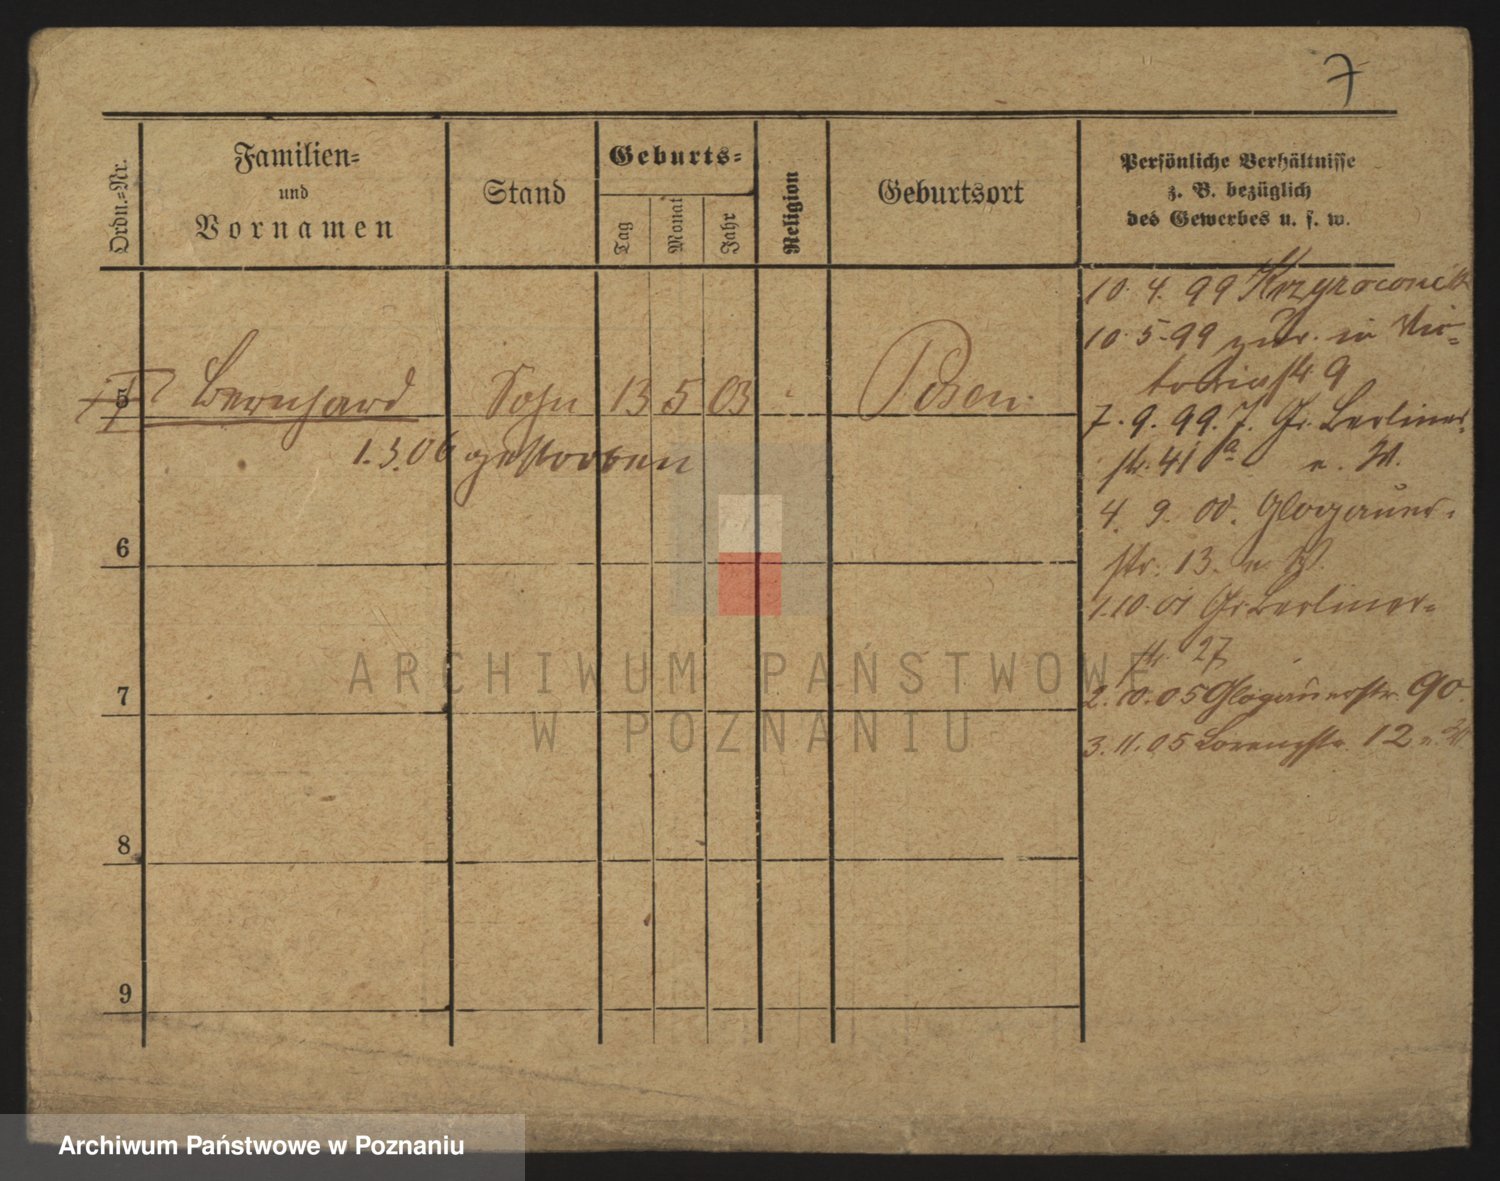 7
Ordn.-Nr.
Familien-
und
Vornamen
Stand
Geburts-
Tag
Monat
Jahr
Religion
Geburtsort
Persönliche Verhältnisse
z. B. bezüglich
des Gewerbes u. s. w.
5 Bernhard Sohn 13 5 03 Posen.
1.3.06 gestorben
6
7
8
9
10.4.99
10.5.99 zur. in Vic-
toriastr 9
7.9.99. Gr. Berliner
str. 41a
4. 9. 00. Glogauer-
str. 13.
1.10.01 Gr Berliner-
str 27
2.10.05 Glogauerstr. 90.
3.11.05 Lorenzstr. 12
ARCHIWUM PAŃSTWOWE
W POZNANIU
Archiwum Państwowe w Poznaniu